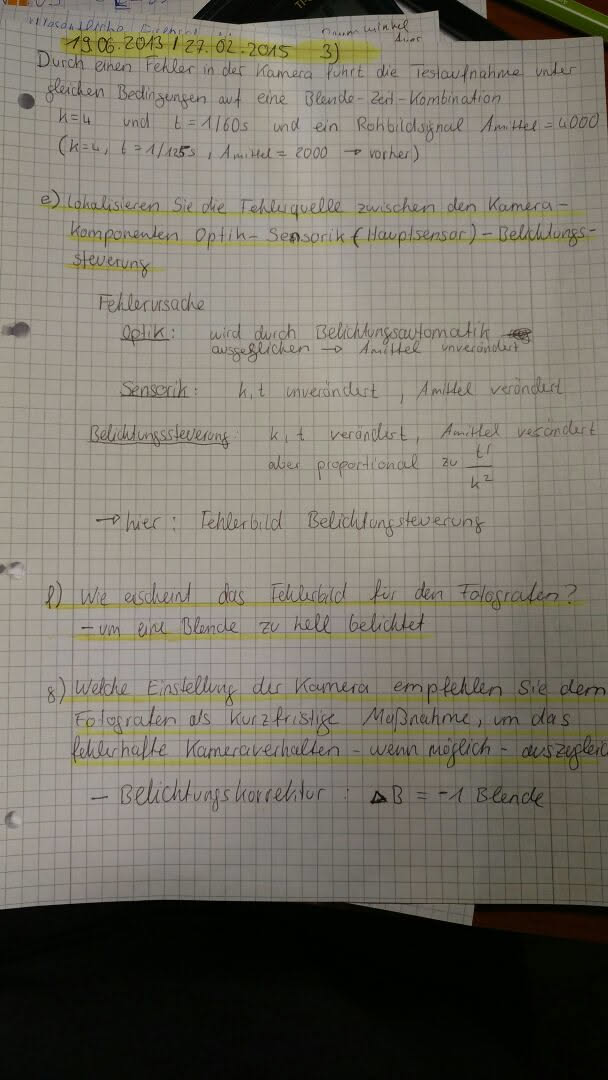 19.06.2013 / 27.02.2015 3)
Durch einen Fehler in der Kamera führt die Testaufnahme unter
gleichen Bedingungen auf eine Blende-Zeit-Kombination
k=4 und t=1/60s und ein Rohbildsignal Amittel = 4000
(k=4, t=1/125s, Amittel = 2000 → vorher)
e) Lokalisieren Sie die Fehlerquelle zwischen den Kamera-
Komponenten Optik- Sensorik (Hauptsensor) - Belichtungs-
steuerung
Fehlerursache
Optik: wird durch Belichtungsautomatik
ausgeglichen → Amittel unverändert
Sensorik: k,t unverändert, Amittel verändert
Belichtungssteuerung: k,t verändert, Amittel verändert
aber proportional zu t/k²
→ hier: Fehlerbild Belichtungsteuerung
f) Wie erscheint das Fehlerbild für den Fotografen?
- um eine Blende zu hell belichtet
g) Welche Einstellung der Kamera empfehlen Sie dem
Fotografen als kurzfristige Maßnahme, um das
fehlerhafte Kameraverhalten - wenn möglich -
- Belichtungskorrektur: ΔB = -1 Blende